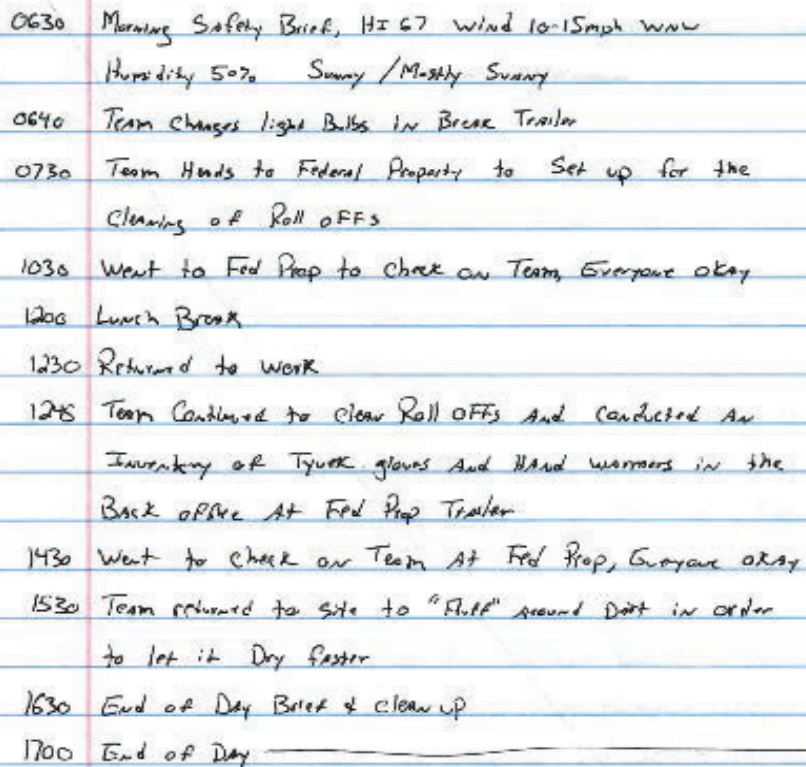 0630 Morning Safety Brief, HI 67 Wind 10-15mph WNW
Humidity 50% Sunny / Mostly Sunny
0640 Team Changes light Bulbs in Break Trailer
0730 Team Heads to Federal Property to Set up for the
Cleaning of Roll OFFs
1030 Went to Fed Prop to Check on Team, Everyone okay
1200 Lunch Break
1230 Returned to work
1245 Team Continued to clean Roll OFFs And Conducted An
Inventory of Tyvek gloves And HAnd warmers in the
Back office At Fed Prop Trailer
1430 Went to Check on Team At Fed Prop, Everyone okay
1530 Team returned to site to "Fluff" around Dirt in order
to let it Dry faster
1630 End of Day Brief & clean up
1700 End of Day